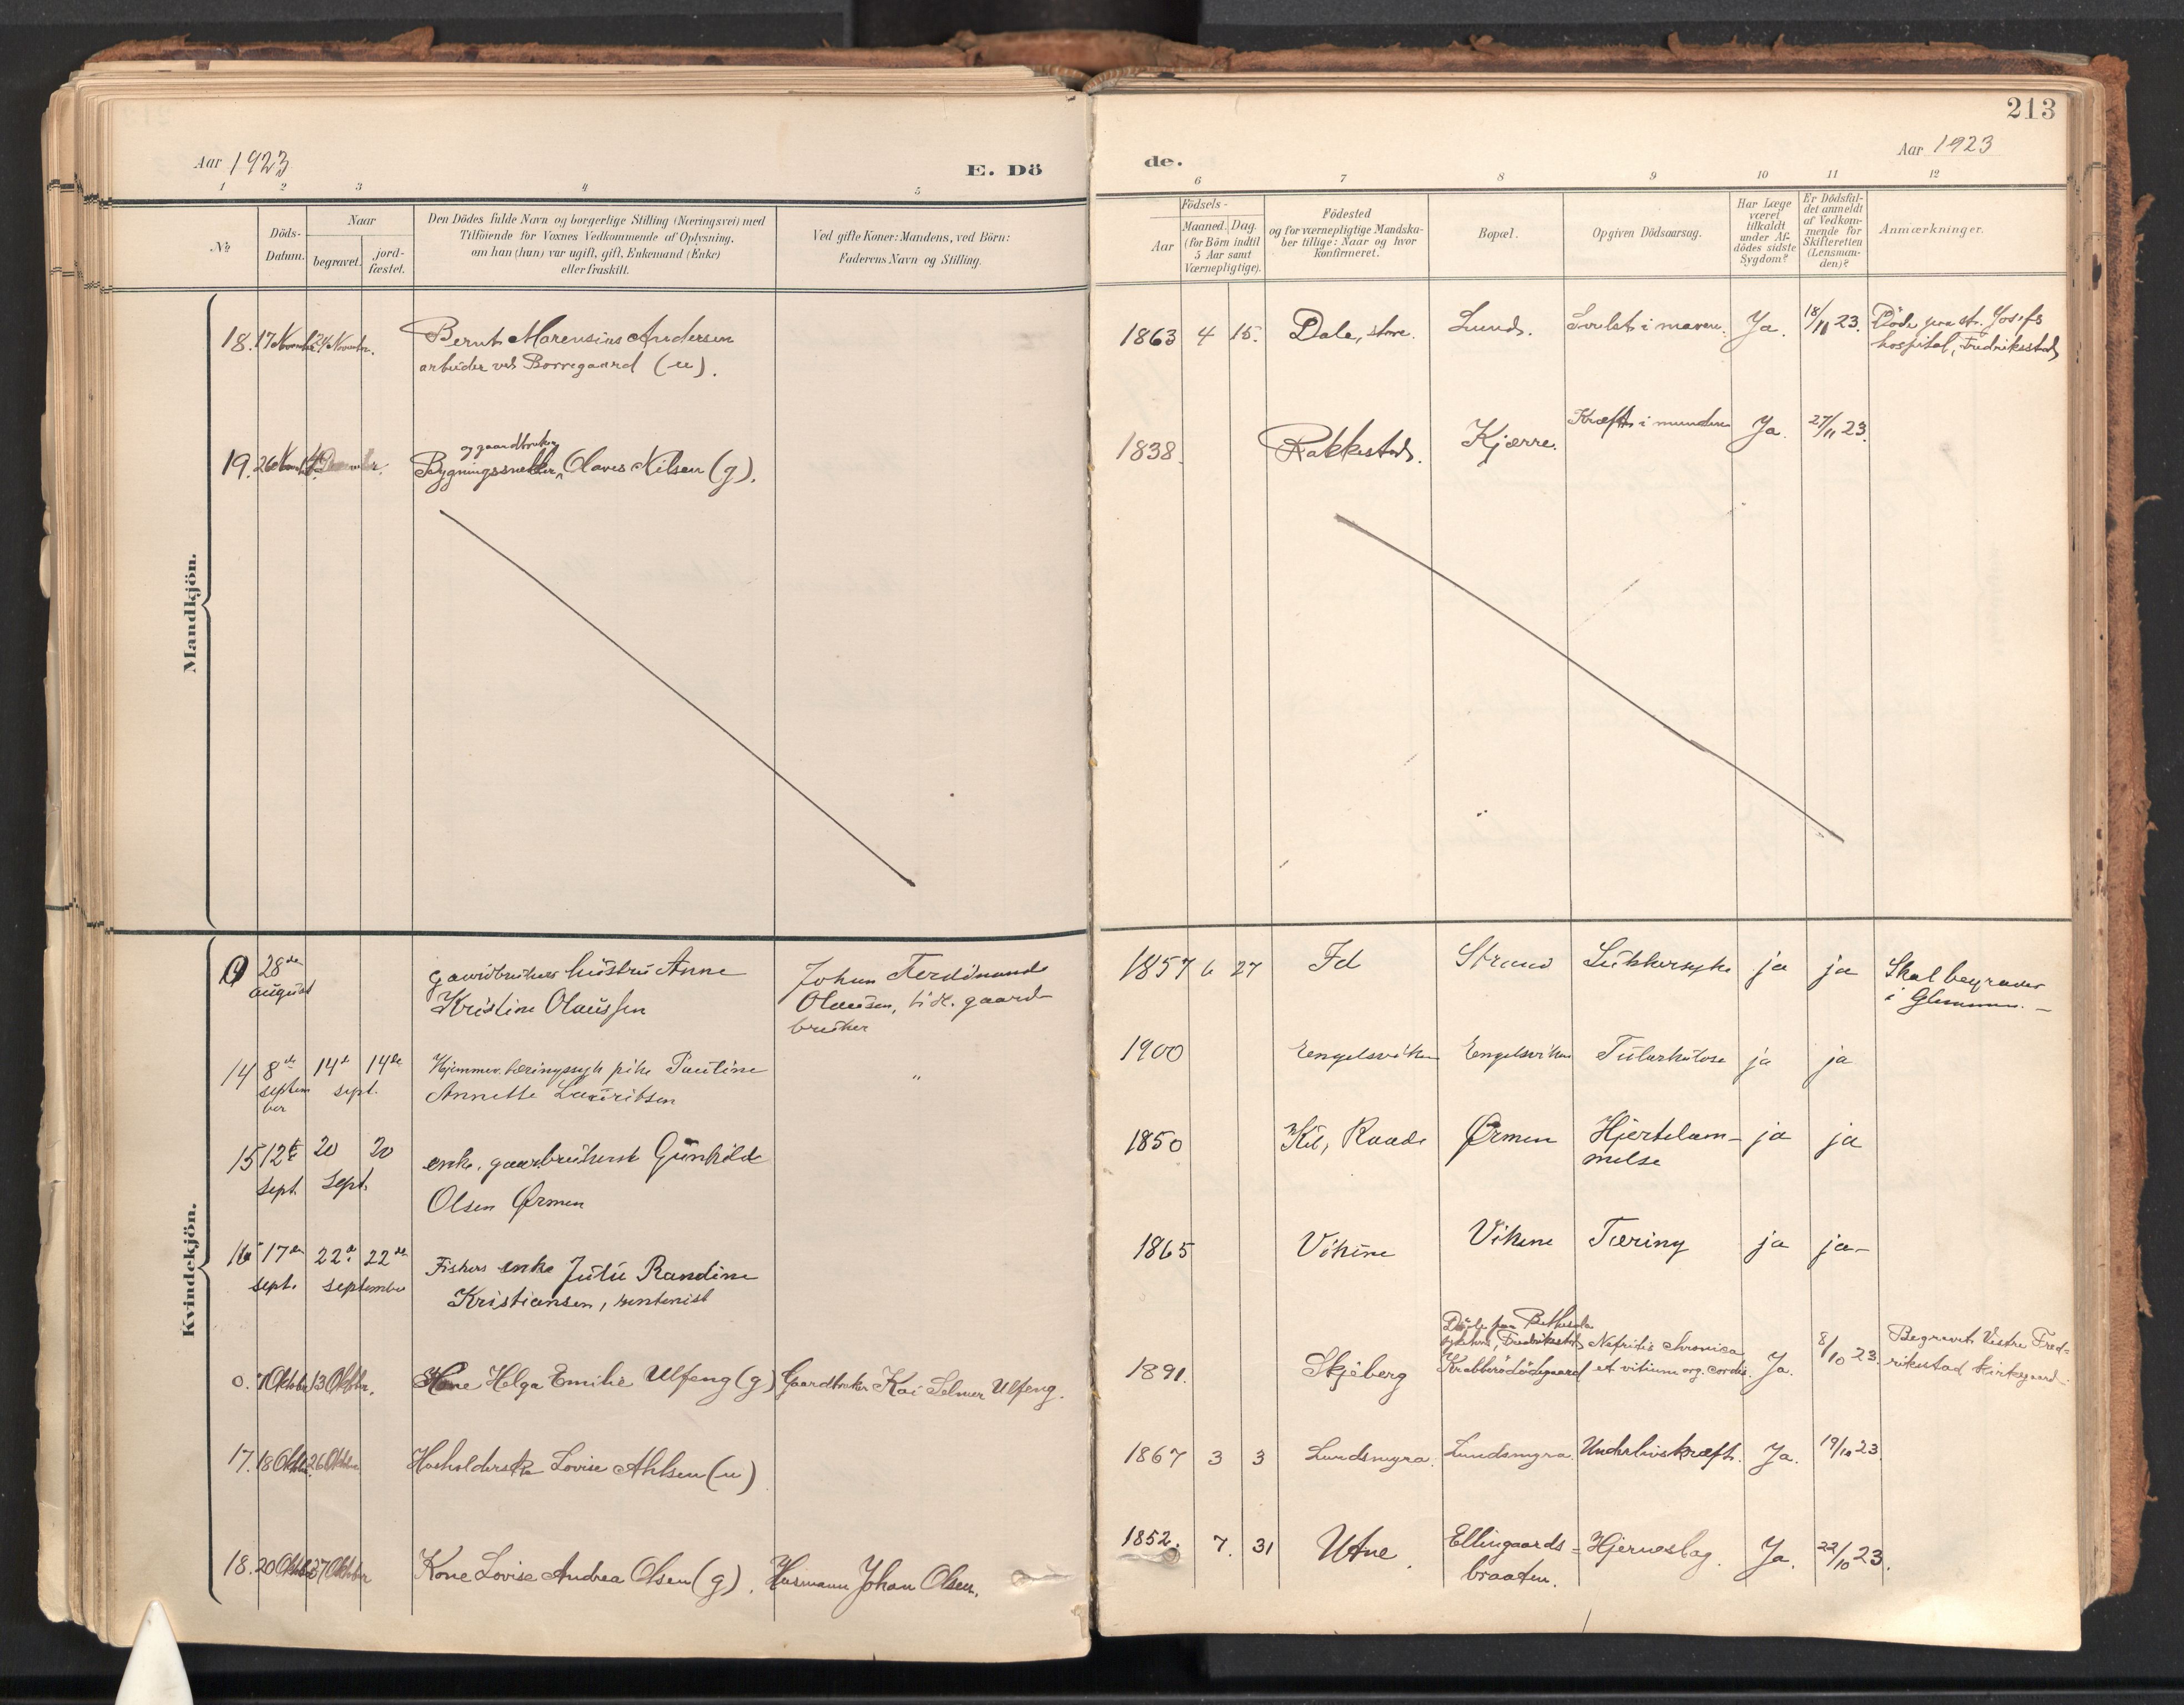 213
Aar 1923
E. Dö
de.
Aar 1923
1 2 3 4 5
6 7 8 9 10 11 12
No
Döds-
Datum.
Naar
begravet.
jord-
fæstet.
Den Dödes fulde Navn og borgerlige Stilling (Næringsvei) med
Tilföiende for Voxnes Vedkommende af Oplysning,
om han (hun) var ugift, gift, Enkemand (Enke)
eller fraskilt.
Ved gifte Koner: Mandens, ved Börn:
Faderens Navn og Stilling.
Födsels-
Aar
Maaned. Dag.
(for Börn indtil
5 Aar samt
Værnepligtige).
Födested
og for værnepligtige Mandska-
ber tillige: Naar og hvor
konfirmeret.
Bopæl.
Opgiven Dödsaarsag.
Har Læge
været
tilkaldt
under Af-
dödes sidste
Sygdom?
Er Dödsfal-
det anmeldt
af Vedkom-
mende for
Skifteretten
(Lensman-
den)?
Anmærkninger.
Mandkjön.
18. 17 Novembr. 24 Novembr.
Bernt Marensius Andersen
arbeider ved Borregaard (u).
1863 4 15. Dale, store. Lund. Svulst i maven. Ja. 18/11 23.
Döde paa st. Josefs
hospital, Fredriksstad
19. 26 Novbr.
og gaardbruker
Bygningssnekker Olaves Nilsen (g).
1838. Rakkestad. Kjærre. Kræft i munden Ja. 27/11 23.
Kvindekjön.
28de
august
gaardbrukers hustru Anne
Kristine Olaussen
Johan Ferdinand
Olausen, tidl. gaard-
bruker
1857 6 27 Id Strand Sukkersyke ja ja
Skal begraves
i Glemmen. -
14 8de
septem
ber
14de 14de
sept.
tæringssyk pike Pauline
Annette Lauritsen
"
1900 Engelsviken Engelsviken Tuberkulose ja ja
15 12te
sept.
20 20
sept.
enke, gaardbrukersk Gunhilde
Olsen Ørmen
1850 Kil, Raade Ørmen Hjertelam-
melse
ja ja
16 17de
sept.
22de 22de
september
Fiskers enke Julie Randine
Kristiansen, rentenist
1865 Vikene Vikene Tæring ja ja-
0. 7 Oktober 13 Oktbr.
Kone Helga Emilie Ulfeng (g) Gaardbruker Kai Selmer Ulfeng.
1891. Skjeberg
Döde paa Bethesda
sykehus, Fredrikstad
Krabberödödegaard
Nefritis chronica
et vitium org. cordis. Ja. 8/10 23.
Begravet Vestre Fred-
rikstad kirkegaard.
17. 18 Oktbr. 26 Oktbr
Husholderske Lovise Ahlsen (u)
1867 3 3 Lundsmyra. Lundsmyra. Underlivskræft. Ja. 19/10 23.
18. 20 Oktbr 27 Oktober
Kone Lovise Andrea Olsen (g). Husmann Johan Olsen.
1852. 7. 31 Utne. Ellingaards-
braaten.
Hjerneslag. Ja. 22/10 23.